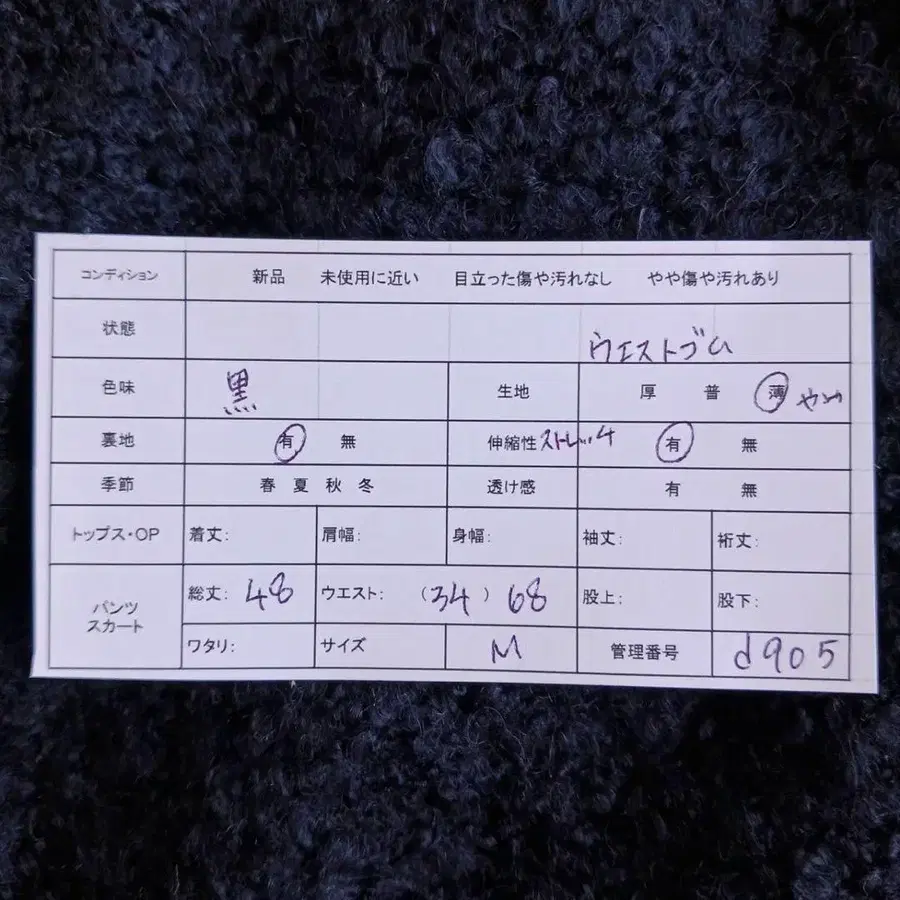 コンディション 新品 未使用に近い 目立った傷や汚れなし やや傷や汚れあり
状態 ウエストゴム
色味 黒 生地 厚 普 薄 やや
裏地 有 無 伸縮性 ストレッチ 有 無
季節 春 夏 秋 冬 透け感 有 無
トップス・OP 着丈: 肩幅: 身幅: 袖丈: 裄丈:
パンツ スカート 総丈: 48 ウエスト: (34) 68 股上: 股下:
ワタリ: サイズ M 管理番号 d905